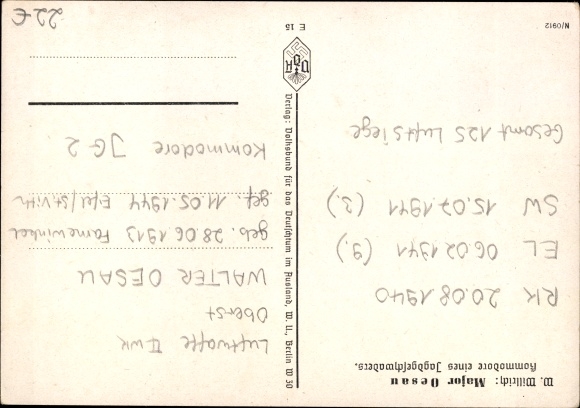 W. Willrich: Major Oesau
Kommodore eines Jagdgeschwaders.
RK 20.08.1940
EL 06.02.1941 (9.)
SW 15.07.1941 (3.)
Gesamt 125 Luftsiege
N/0912
Verlag: Volksbund für das Deutschtum im Ausland, W. U., Berlin W 30
VDA
E 15
Luftwaffe II WK
Oberst
WALTER OESAU
geb. 28.06.1913 Farnewinkel
gef. 11.05.1944 Eifel/St.Vith
Kommodore JG 2
22€